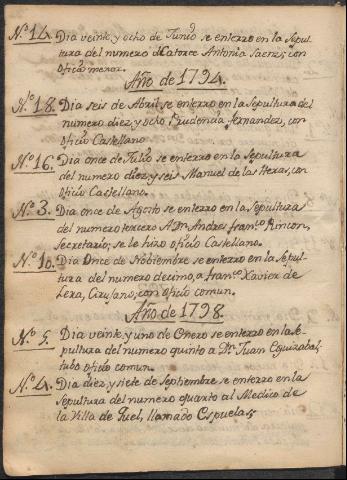 N.º 14. Dia veinte, y ocho de Junio se enterro en la Sepul
tura del numero de Catorce Antonia Saenz, con
oficio menor.
Año de 1794.
N.º 18. Dia seis de Abril, se enterro en la Sepultura del
numero diez, y ocho Prudencia fernandez, con
oficio Castellano
N.º 16. Dia once de Julio se enterro en la Sepultura
del numero diez, y seis Manuel de las Heras, con
oficio Castellano.
N.º 3. Dia once de Agosto se enterro en la Sepultura
del numero tercero a Dn. Andres fran.co Rincon,
Secretario; se le hizo oficio Castellano.
N.º 10. Dia Once de Nobiembre se enterro en la Sepul
tura del numero decimo, a fran.co Xavier de
Lera, Cirujano, con oficio comun.
Año de 1798.
N.º 5. Dia veinte, y uno de Enero se enterro en la Se
pultura del numero quinto a Dn. Juan Eguizabal,
tubo oficio comun.
N.º 4. Dia diez, y siete de Septiembre se enterro en la
Sepultura del numero quarto al Medico de
la Villa de Quel, llamado Espuelas,